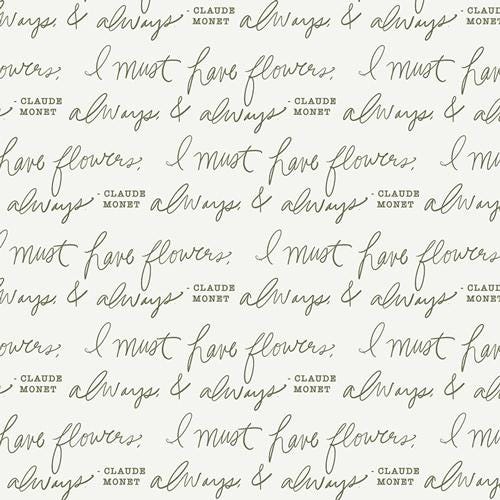 always, & always - CLAUDE MONET always,
owers, I must have flowers, I must ha
- CLAUDE MONET always, & always - CLAUDE MONET always, &
have flowers, I must have flowers, I mus
always - CLAUDE MONET always, & always - CLAUDE MONET always,
I must have flowers, I must have flowers
always, & always - CLAUDE MONET always, & always - CLAUDE MONET
owers, I must have flowers, I must ha
- CLAUDE MONET always, & always - CLAUDE MONET always, &
have flowers, I must have flowers, I mus
always - CLAUDE MONET always, & always - CLAUDE MONET always,